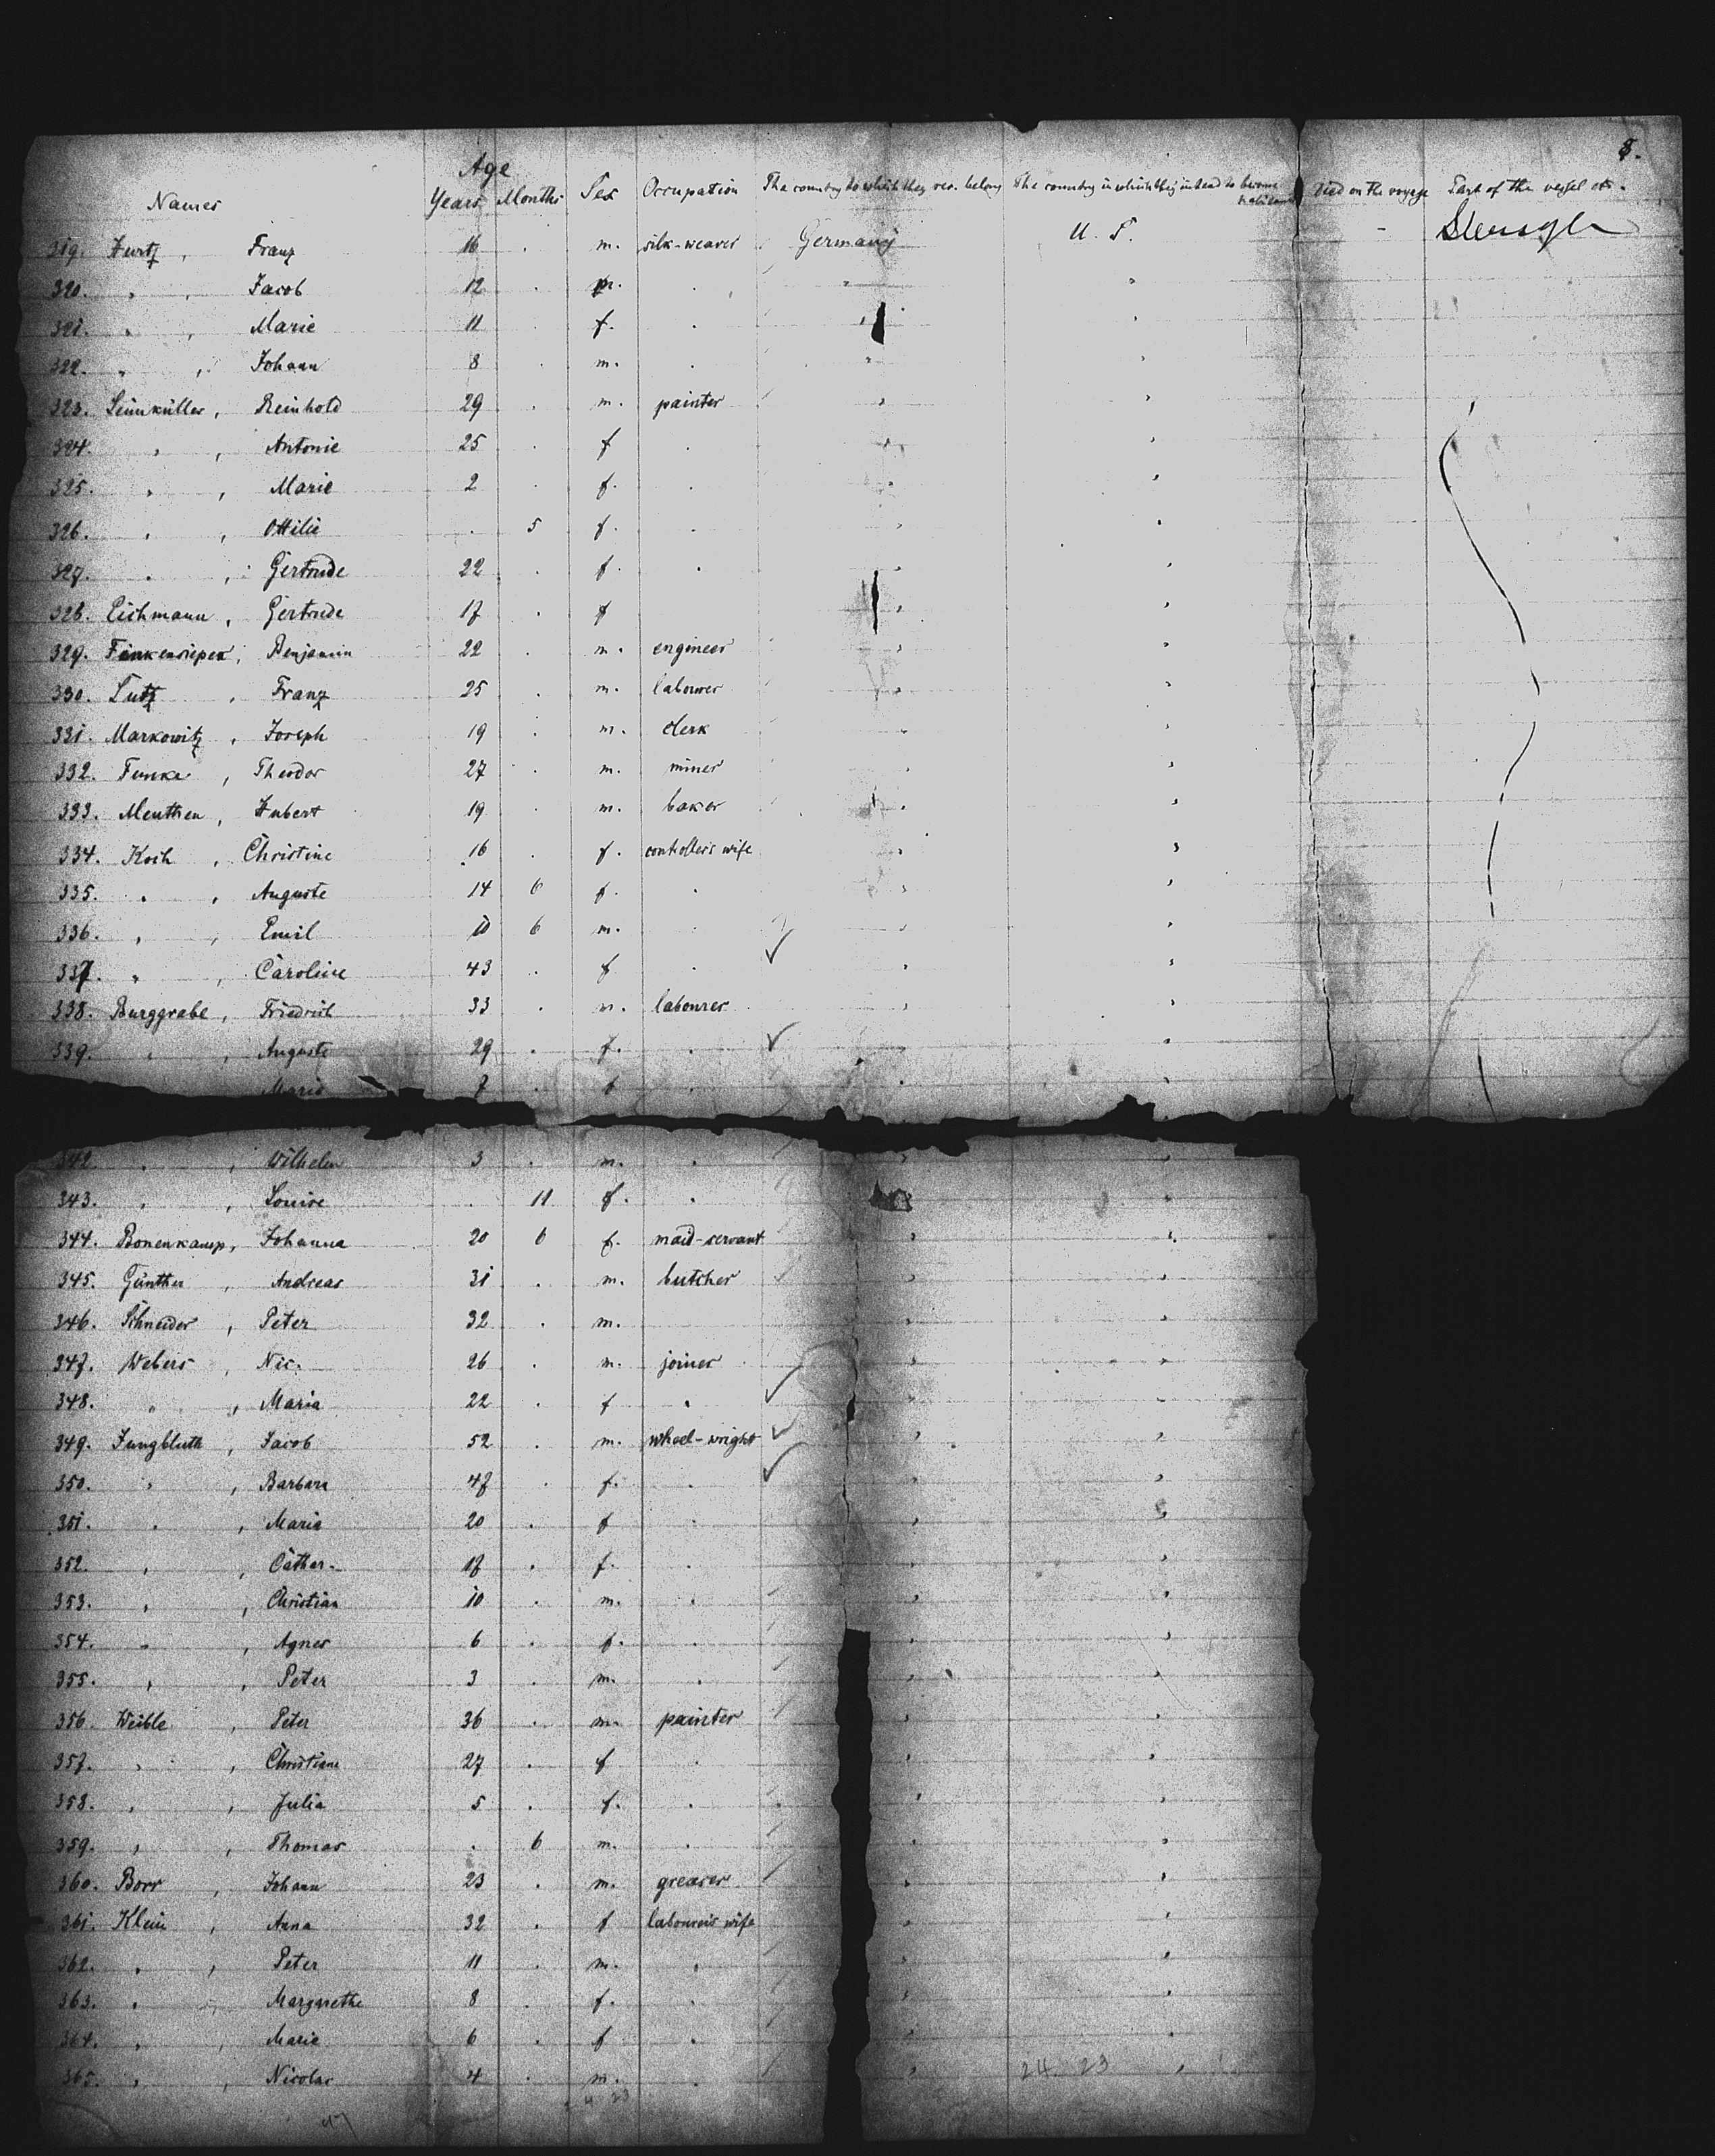 8.
Age
Names Years Months Sex Occupation The country to which they sev. belong The country in which they intend to become Died on the voyage Part of the vessel etc.
319. Hurtz, Franz 16 . m. silk-weaver Germany U. S. - Steerage
320. " , Jacob 12 . m. . " "
321. " , Marie 11 . f. . " "
322. " , Johann 8 . m. . " "
323. Reinhold 29 . m. painter " "
324. " , Antonie 25 . f . " "
325. " , Marie 2 . f. . " "
326. " , Ottilie . 5 f. . " "
327. " , Gertrude 22 . f. . " "
328. Eichmann, Gertrude 17 . f " "
329. Benjamin 22 . m. engineer " "
330. Lutz, Franz 25 . m. labourer " "
331. Markowitz, Joseph 19 . m. clerk " "
332. Funke, Theodor 27 . m. miner " "
333. Menthen, Hubert 19 . m. baker " "
334. Koch, Christine 16 . f. wife " "
335. " , Auguste 14 6 f. . " "
336. " , Emil 10 6 m. . " "
337. " , Caroline 43 . f . " "
338. Burggrabe, Friedrich 33 . m. labourer " "
339. " , Auguste 29 . f. . " "
Marie 7 . f . " "
342. " , Wilhelm 3 . m. . " "
343. " , Louise . 11 f. . " "
344. Bonenkamp, Johanna 20 6 f. maid-servant " "
345. Günther, Andreas 31 . m. butcher " "
346. Schneider, Peter 32 . m. " "
347. Webers, Nic. 26 . m. joiner " "
348. " , Maria 22 . f . " "
349. Jungbluth, Jacob 52 . m. wheel-wright " "
350. " , Barbara 47 . f. . " "
351. " , Maria 20 . f . " "
352. " , Cathar. 17 . f. . " "
353. " , Christian 10 . m. . " "
354. " , Agnes 6 . f. . " "
355. " , Peter 3 . m. . " "
356. Weible, Peter 36 . m. painter " "
357. " , Christiane 27 . f . " "
358. " , Julia 5 . f. . " "
359. " , Thomas . 6 m. . " "
360. Borr, Johann 23 . m. greaser " "
361. Klein, Anna 32 . f labourer's wife " "
362. " , Peter 11 . m. . " "
363. " , Margarethe 8 . f. . " "
364. " , Marie 6 . f . " "
365. " , Nicolas 4 . m. . " 24 23 "